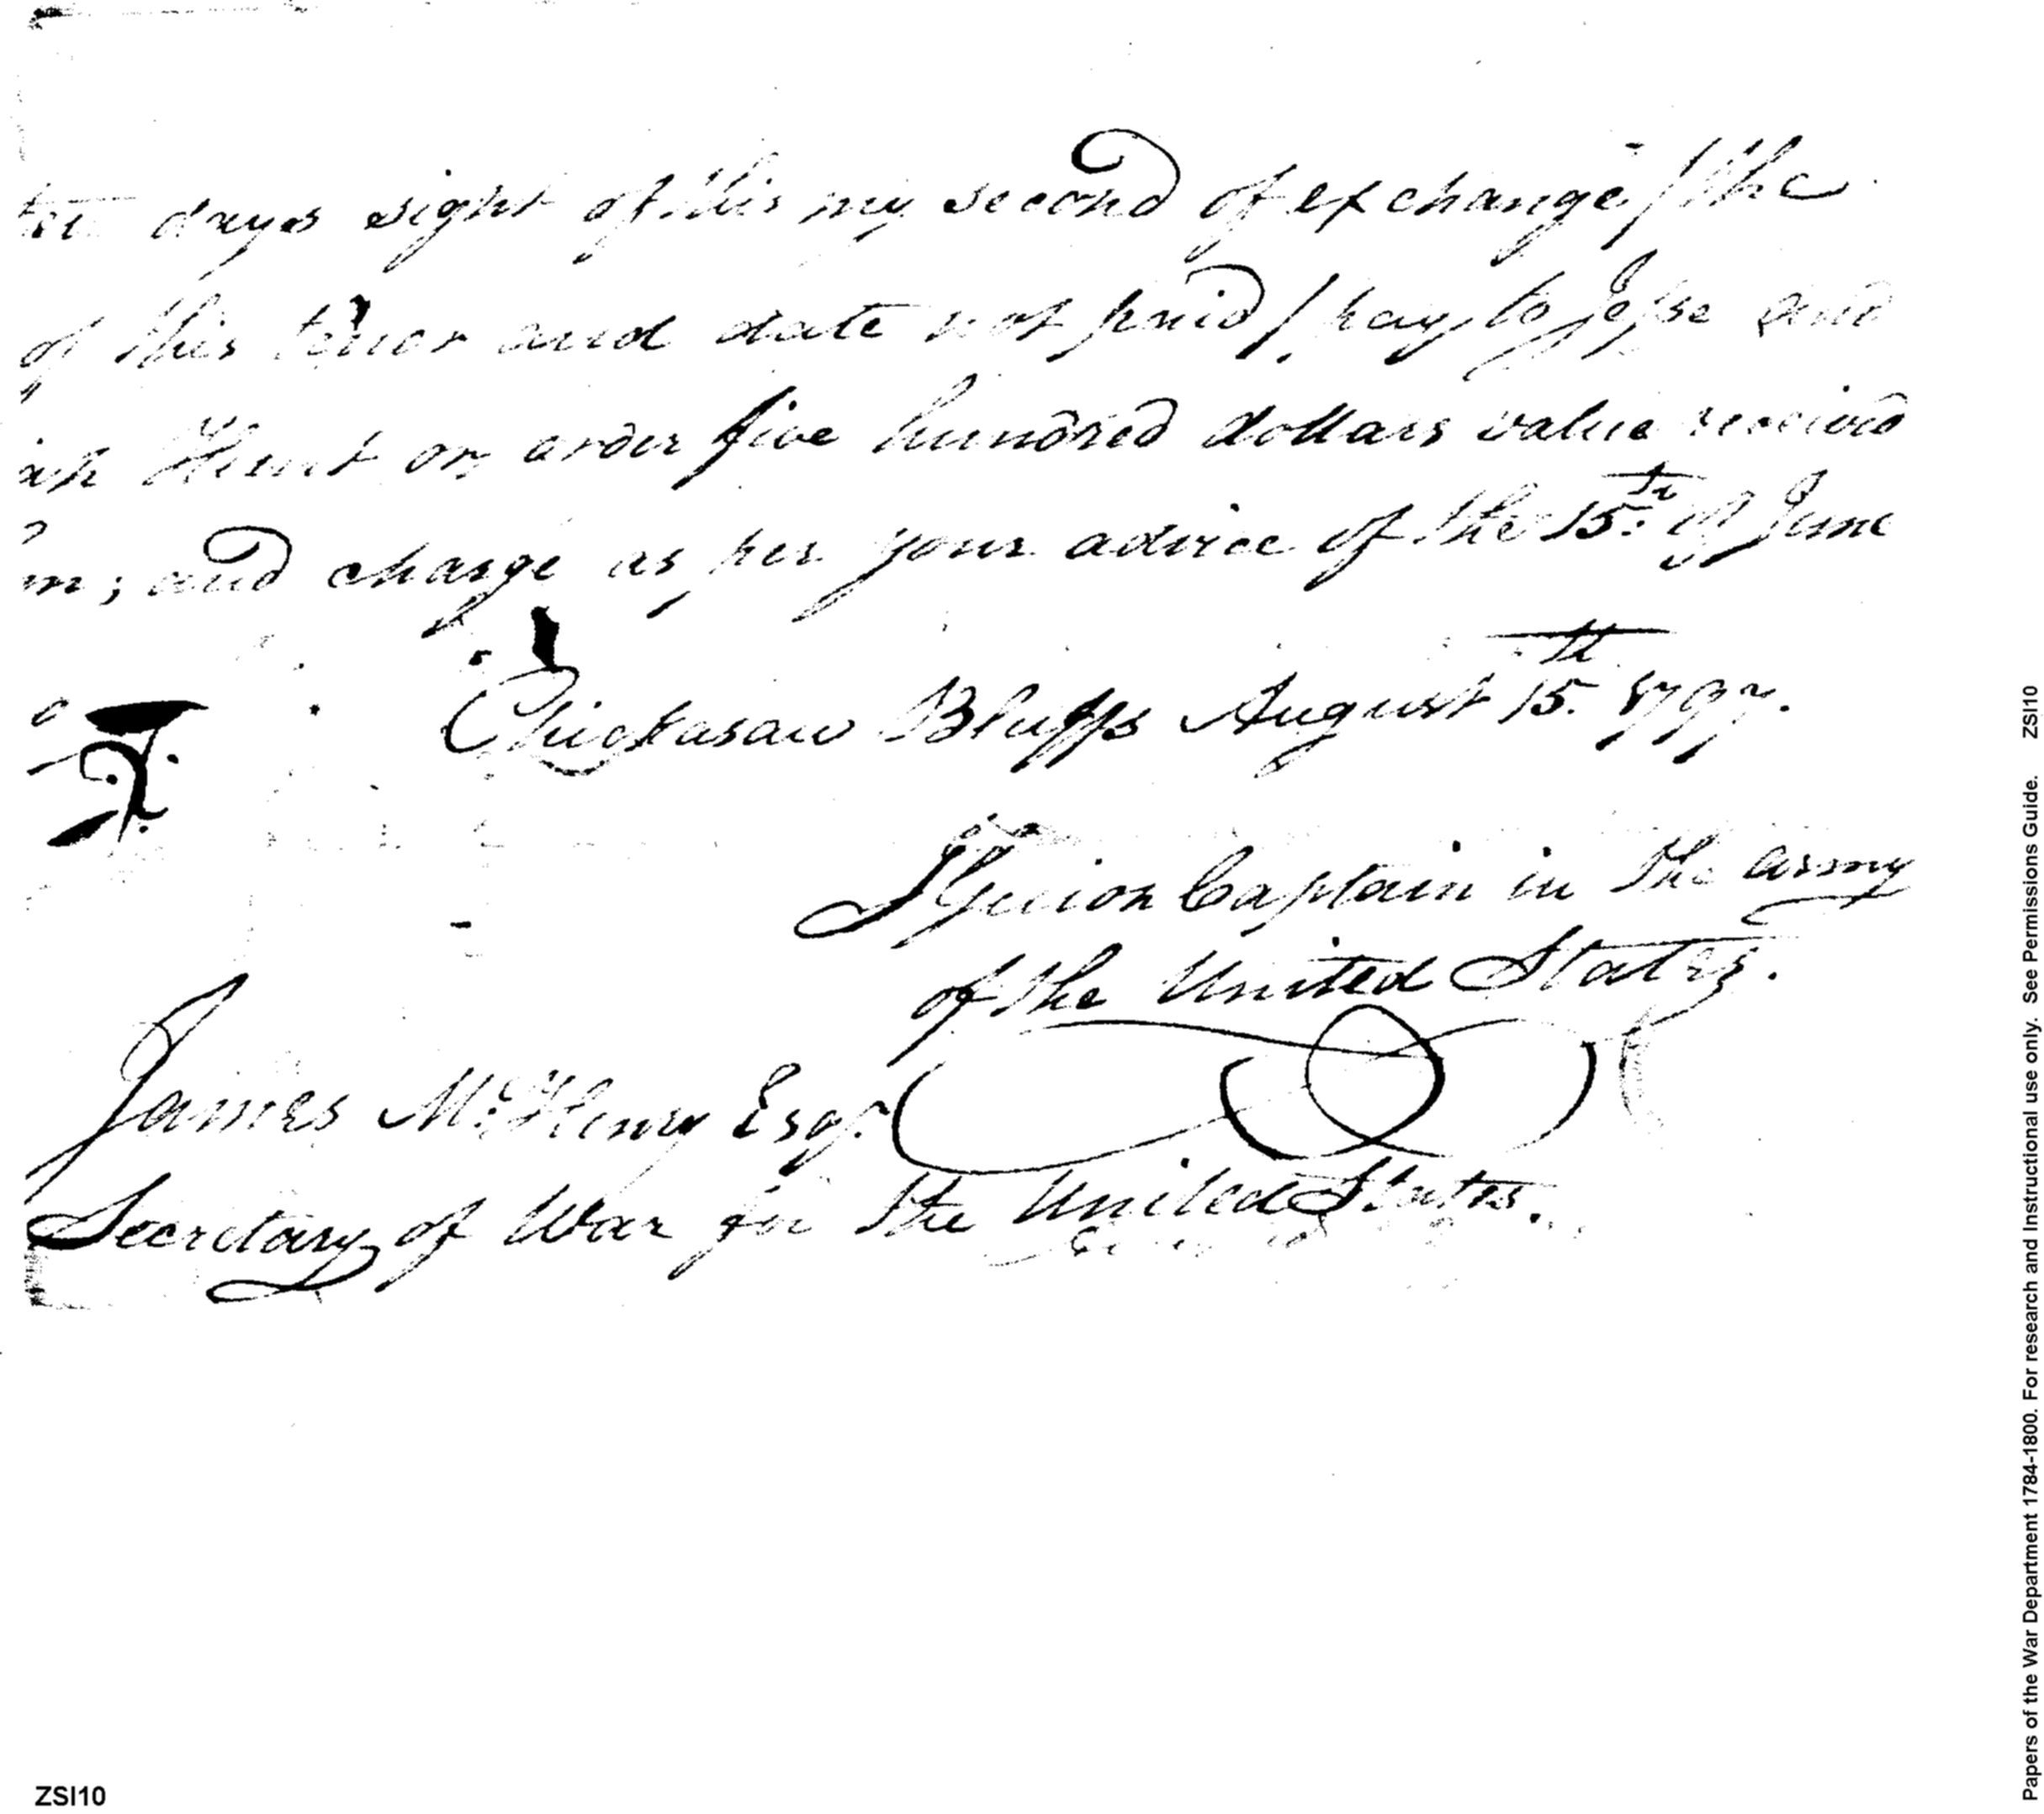 ten days sight of this my second of exchange / the
of this tenor and date not paid / pay to Jesse and
ah Hunt or order five hundred dollars value received
m; and charge as per your advice of the 15th of June
Chickasaw Bluffs August 15th 1797.
I Guion Captain in the army
of the United States.
James McHenry Esqr.
Secretary of War for the United States.
ZSI10
Papers of the War Department 1784-1800. For research and Instructional use only. See Permissions Guide. ZSI10